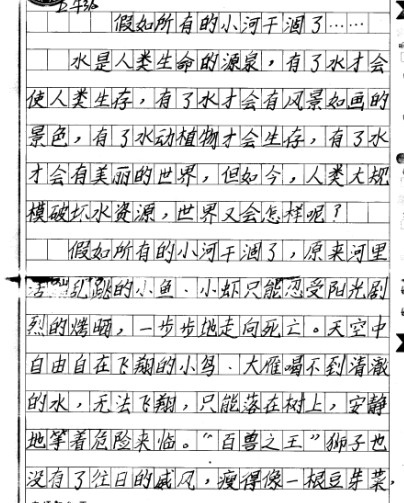 假如所有的小河干涸了……
水是人类生命的源泉，有了水才会
使人类生存，有了水才会有风景如画的
景色，有了水动植物才会生存，有了水
才会有美丽的世界，但如今，人类大规
模破坏水资源，世界又会怎样呢？
假如所有的小河干涸了，原来河里
活蹦乱跳的小鱼、小虾只能忍受阳光剧
烈的烤晒，一步步地走向死亡。天空中
自由自在飞翔的小鸟、大雁喝不到清澈
的水，无法飞翔，只能落在树上，安静
地等着危险来临。“百兽之王”狮子也
没有了往日的威风，瘦得像一根豆芽菜，